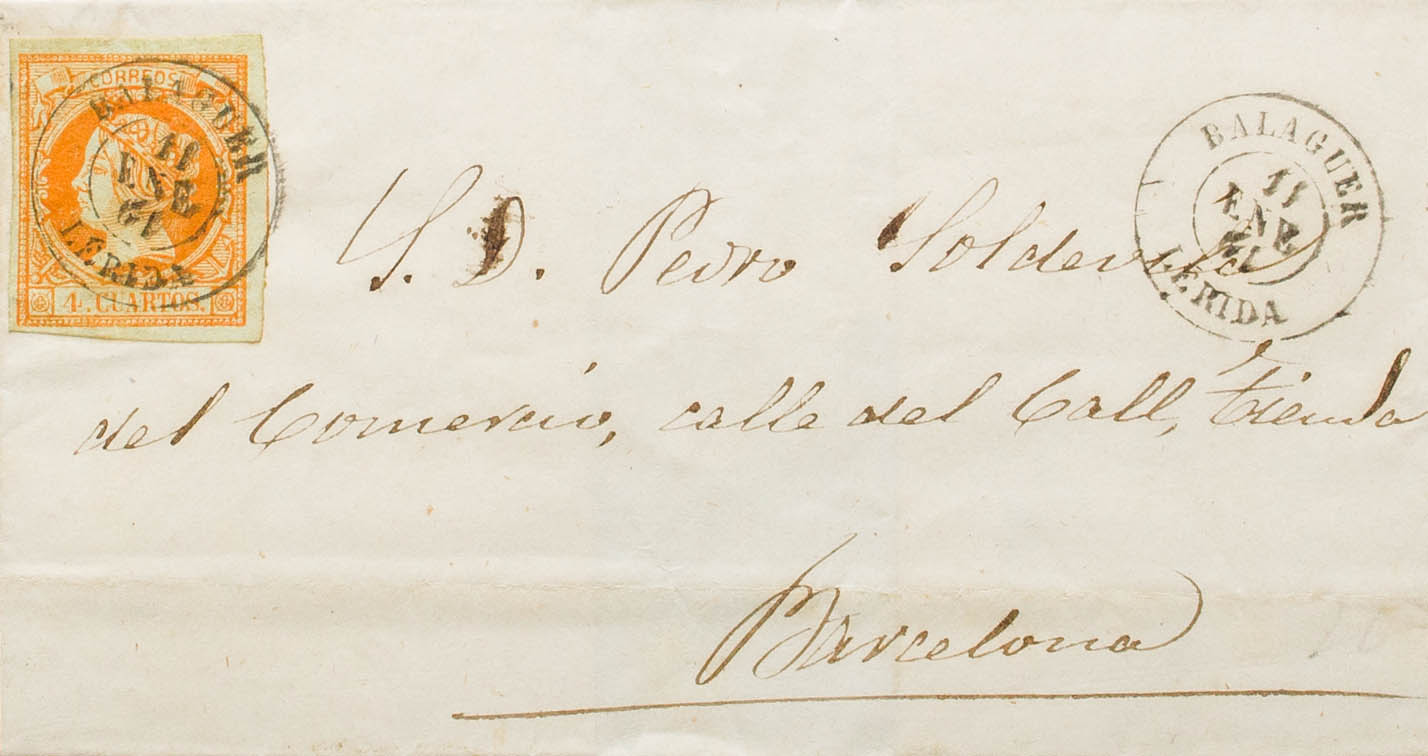 CORREOS
BALAGUER
11
ENE
61
LERIDA
4. CUARTOS.
BALAGUER
11
ENE
61
LERIDA
S. D. Pedro Soldevila
del Comercio, calle del Call, tienda
Barcelona